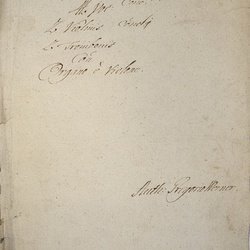 2 Violinis
2 Trombonis
Con
Organo è Violone.
Auth: Gregorio Werner